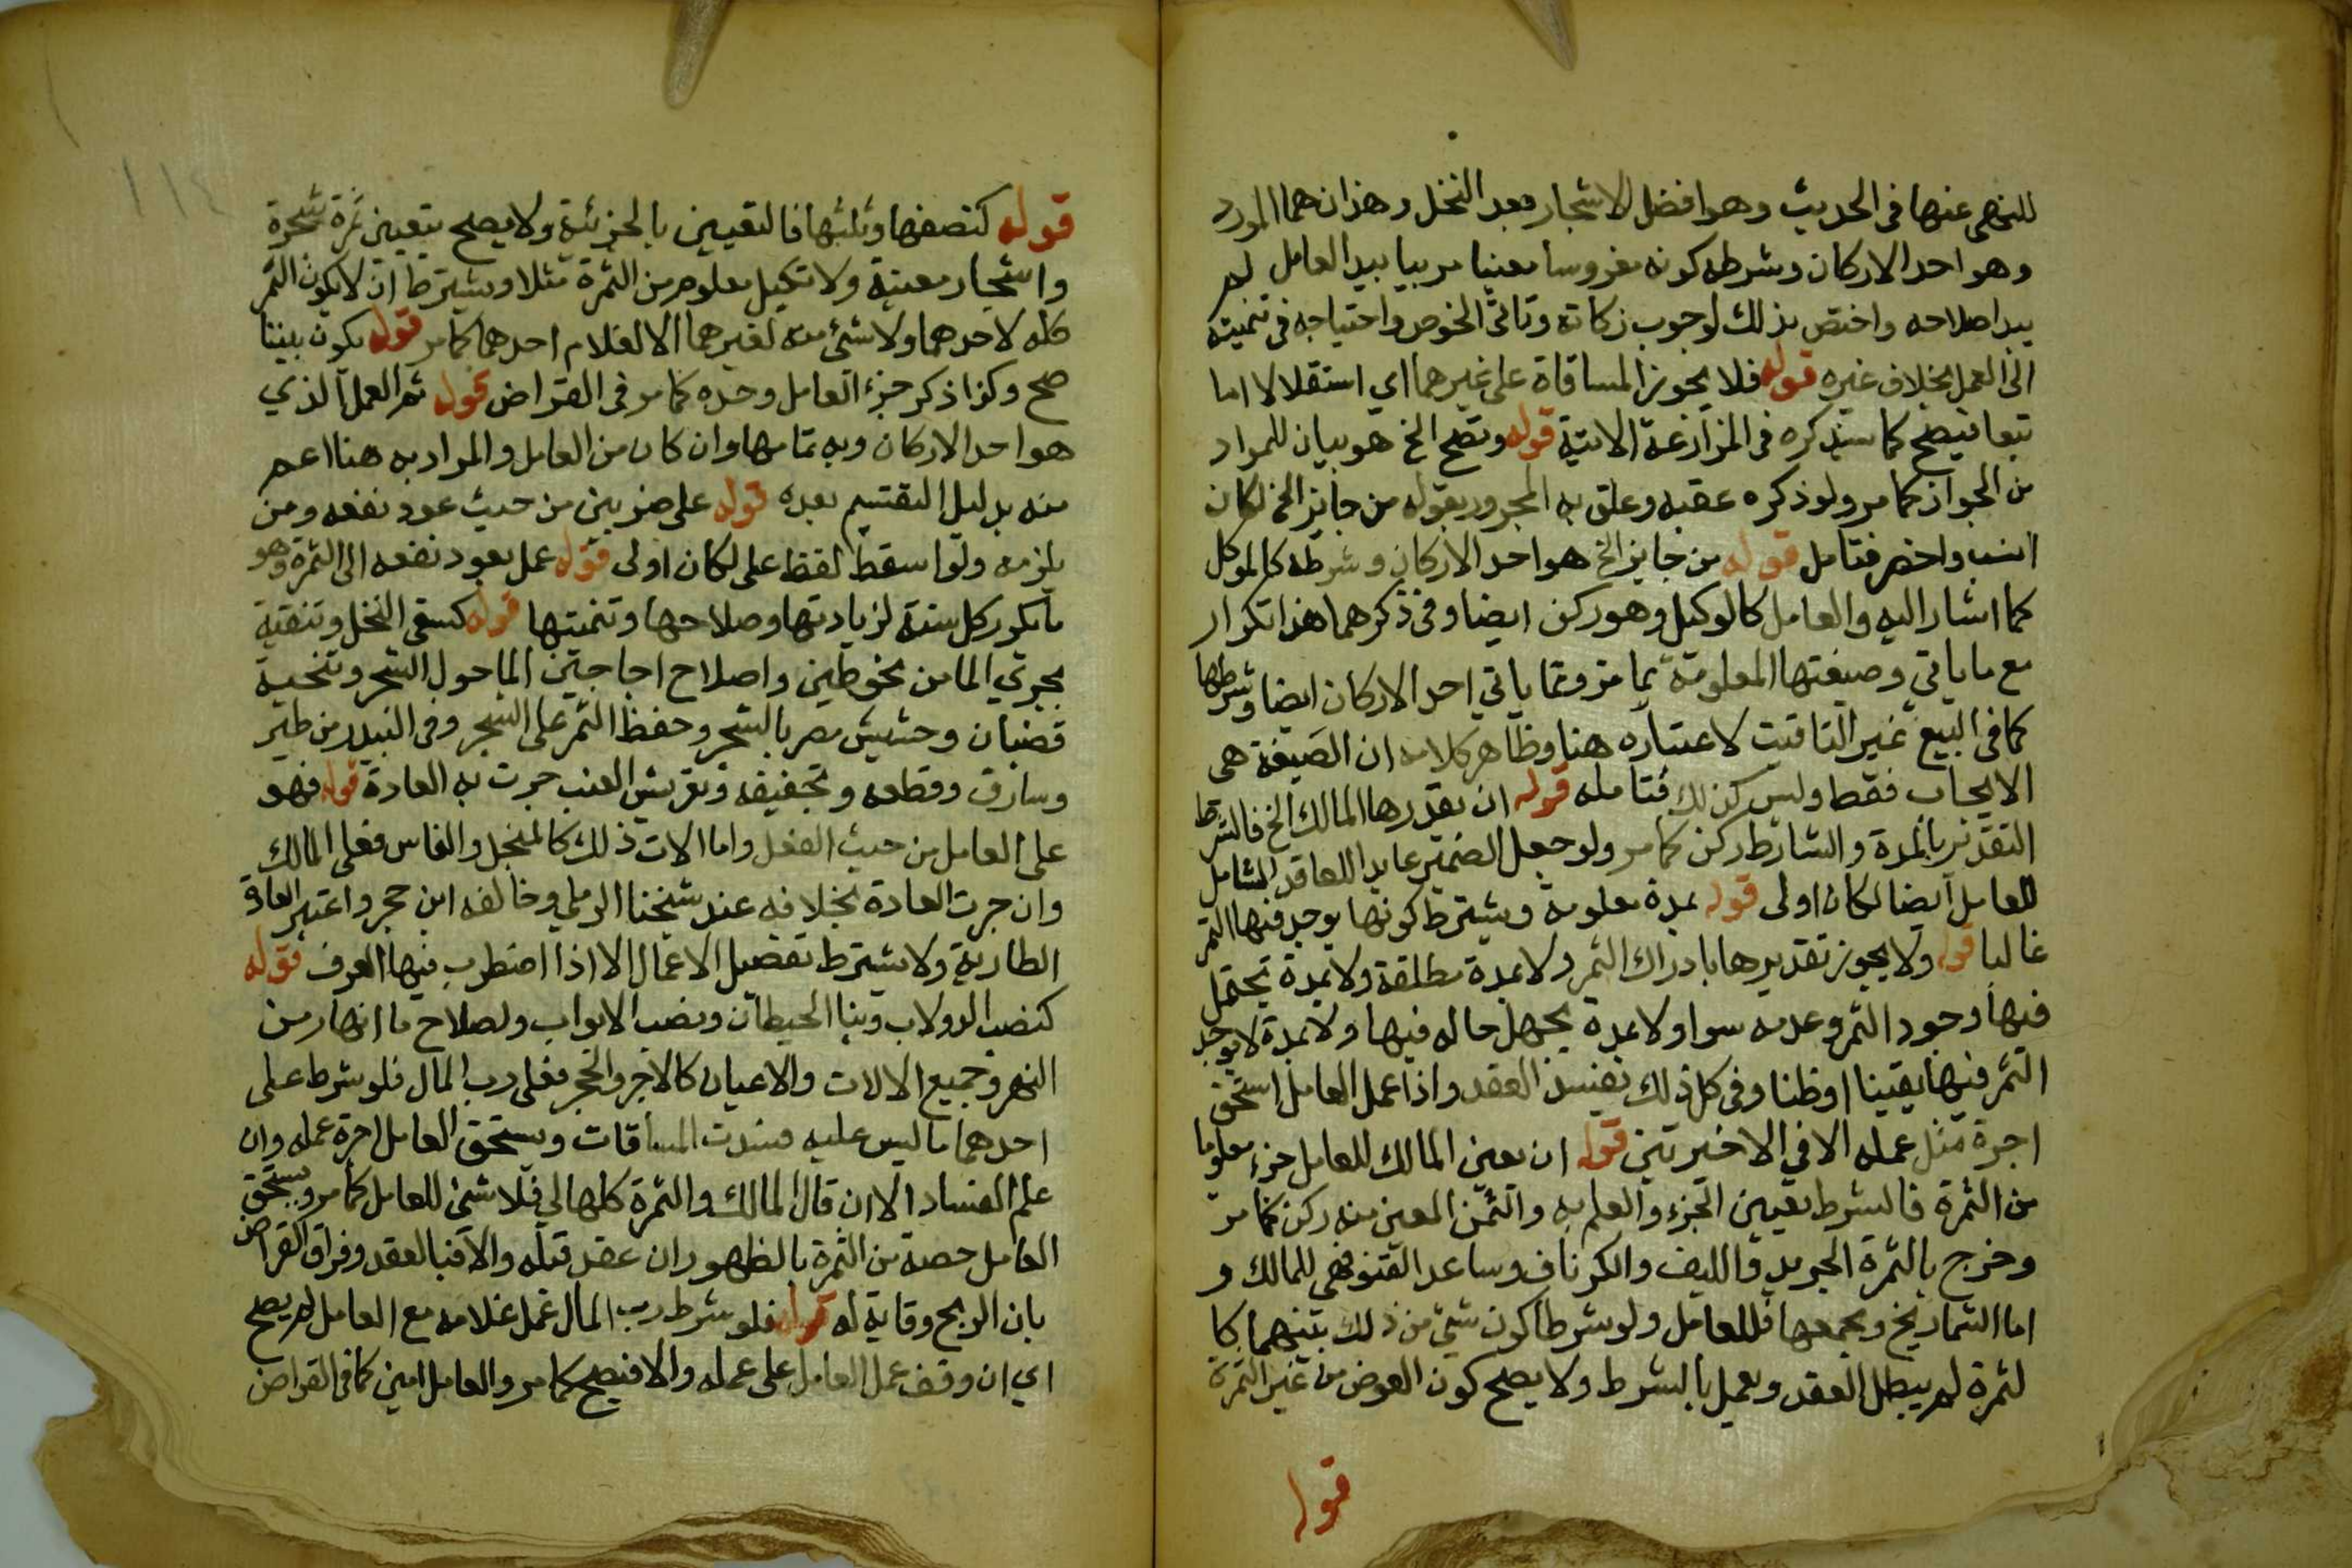 للنهي عنها في الحديث وهو افضل الاشجار بعد النخل وهذان هما المورد
وهو احد الاركان وشرطه كونه مغروسا معينا مربيا بيد العامل لم
يبد صلاحه واختص بذلك لوجوب زكاته وتاتي الخرص واحتياجه في تنميته
الى العمل بخلاف غيره قوله فلا يجوز المساقاة على غيرهما اي استقلالا اما
تبعا فيصح كما سيذكره في المزارعة الاتية قوله وتصح الخ هو بيان للمراد
من الجواز كما مر ولو ذكره عقبه وعلق به المجرور بقوله من جايز الخ لكان
انسب واخصر فتامل قوله من جايز الخ هو احد الاركان وشرطه كالموكل
كما اشار اليه والعامل كالوكيل وهو ركن ايضا وفي ذكرهما هذا تكرار
مع ما ياتي وصيغتها المعلومة مما مر ومما ياتي احد الاركان ايضا وشرطها
كما في البيع غير التاقيت لاعتباره هنا وظاهر كلامه ان الصيغة هي
الايجاب فقط وليس كذلك فتامله قوله ان يقدرها المالك الخ فالشرط
التقدير بالمدة والشارط ركن كما مر ولو جعل الضمير عايدا للعاقد الشامل
للعامل ايضا لكان اولى قوله بمدة معلومة ويشترط كونها يوجد فيها الثمر
غالبا قوله ولا يجوز تقديرها بادراك الثمر ولا بمدة مطلقة ولا بمدة يحتمل
فيها وجود الثمر وعدمه سوا ولا بمدة يجهل حاله فيها ولا بمدة لا يوجد
الثمر فيها يقينا او ظنا وفي كل ذلك يفسد العقد واذا عمل العامل استحق
اجرة مثل عمله الا في الاخيرتين قوله ان يعين المالك للعامل جزء معلوما
من الثمرة فالشرط تعيين الجزء والعلم به والثمن المعين منه ركن كما مر
وخرج بالثمرة الجريد والليف والكرناف وساعد القنو فهي للمالك و
اما الشماريخ ومجمعها فللعامل ولو شرطا كون شئ من ذلك بينهما كا
لثمرة لم يبطل العقد ويعمل بالشرط ولا يصح كون العوض من غير الثمرة
قوله
١١٤
قوله كنصفها وثلثها فالتعيين بالجزئية ولا يصح بتعيين ثمرة شجرة
واشجار معينة ولا تكيل معلوم من الثمرة مثلا ويشترط ان لا يكون الثمر
كله لاحدهما ولا شئ منه لغيرهما الا لغلام احدهما كما مر قوله يكون بيننا
صح وكذا ذكر جزء العامل وحده كما مر في القراض قوله ثم العمل الذي
هو احد الاركان وبه تمامها وان كان من العامل والمراد به هنا اعم
منه بدليل التقسيم بعده قوله على ضربين من حيث عود نفعه ومن
يلزمه ولو اسقط لفظ على لكان اولى قوله عمل يعود نفعه الى الثمرة وهو
ما يكرر كل سنة لزيادتها وصلاحها وتنميتها قوله كسقي النخل وتنقية
مجري الما من نحو طين واصلاح اجاجين الما حول الشجر وتنحية
قضبان وحشيش مضر بالشجر وحفظ الثمر على الشجر وفي البيدر من طير
وسارق وقطعه وتجفيفه وتعريش العنب جرت به العادة قوله فهو
على العامل من حيث الفعل واما الات ذلك كالمنجل والفاس فعلى المالك
وان جرت العادة بخلافه عند شيخنا الرملي وخالفه ابن حجر واعتبر العادة
الطارية ولا يشترط تفصيل الاعمال الا اذا اضطرب فيها العرف قوله
كنصب الدولاب وبنا الحيطان ونصب الابواب وصلاح ما انهار من
النهر وجميع الالات والاعيان كالاجر والحجر فعلى رب المال فلو شرط على
احدهما ما ليس عليه فسدت المساقات ويستحق العامل اجرة عمله وان
علم الفساد الا ان قال المالك والثمرة كلها لي فلا شئ للعامل كما مر ويستحق
العامل حصة من الثمرة بالظهور ان عقد قبله والا فبالعقد وفراق القراض
بان الربح وقاية له قوله فلو شرط رب المال عمل غلامه مع العامل لم يصح
اي ان وقف عمل العامل على عمله والا فيصح كما مر والعامل امين كما في القراض